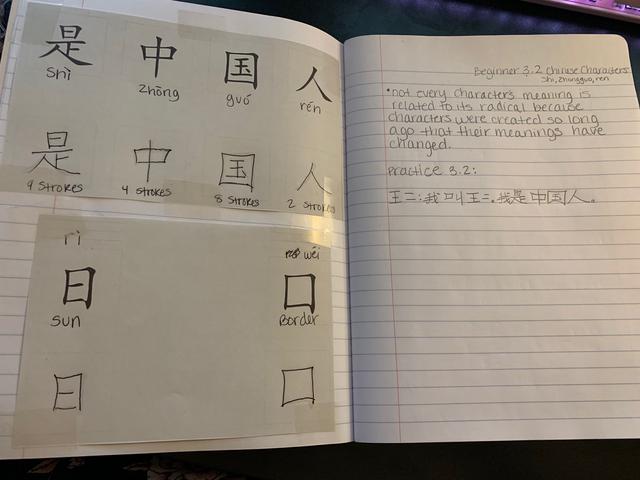 是 中 国 人
shì zhōng guó rén
是 中 国 人
9 strokes 4 strokes 8 strokes 2 strokes
rì wéi
日 囗
sun Border
日 囗
Beginner 3.2 Chinese Characters
Shi, Zhongguo, ren
• not every characters meaning is
related to its radical because
characters were created so long
ago that their meanings have
changed.
Practice 3.2:
王二:我叫王二。我是中国人。